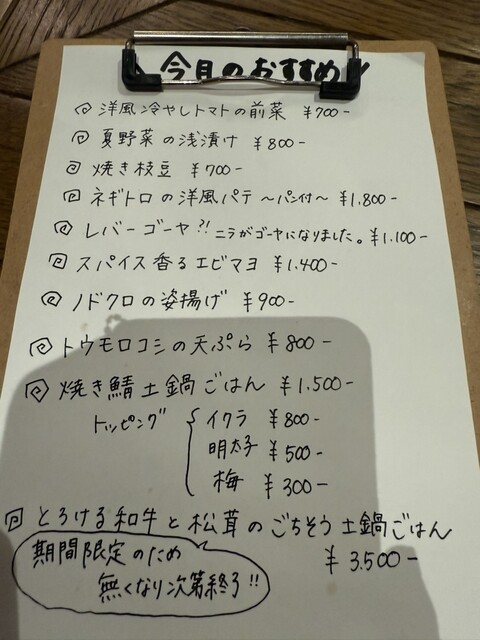 今月のおすすめ!
洋風冷やしトマトの前菜 ¥700-
夏野菜の浅漬け ¥800-
焼き枝豆 ¥700-
ネギトロの洋風パテ 〜パン付〜 ¥1.800-
レバーゴーヤ?! ニラがゴーヤになりました。¥1.100-
スパイス香るエビマヨ ¥1.400-
ノドクロの姿揚げ ¥900-
トウモロコシの天ぷら ¥800-
焼き鯖土鍋ごはん ¥1.500-
トッピング
イクラ ¥800-
明太子 ¥500-
梅 ¥300-
とろける和牛と松茸のごちそう土鍋ごはん
¥3.500-
期間限定のため
無くなり次第終了!!